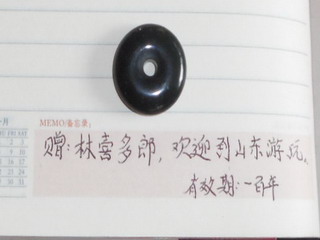 MEMO/备忘录:
赠:林喜多郎,欢迎到山东游玩。
有效期:一百年